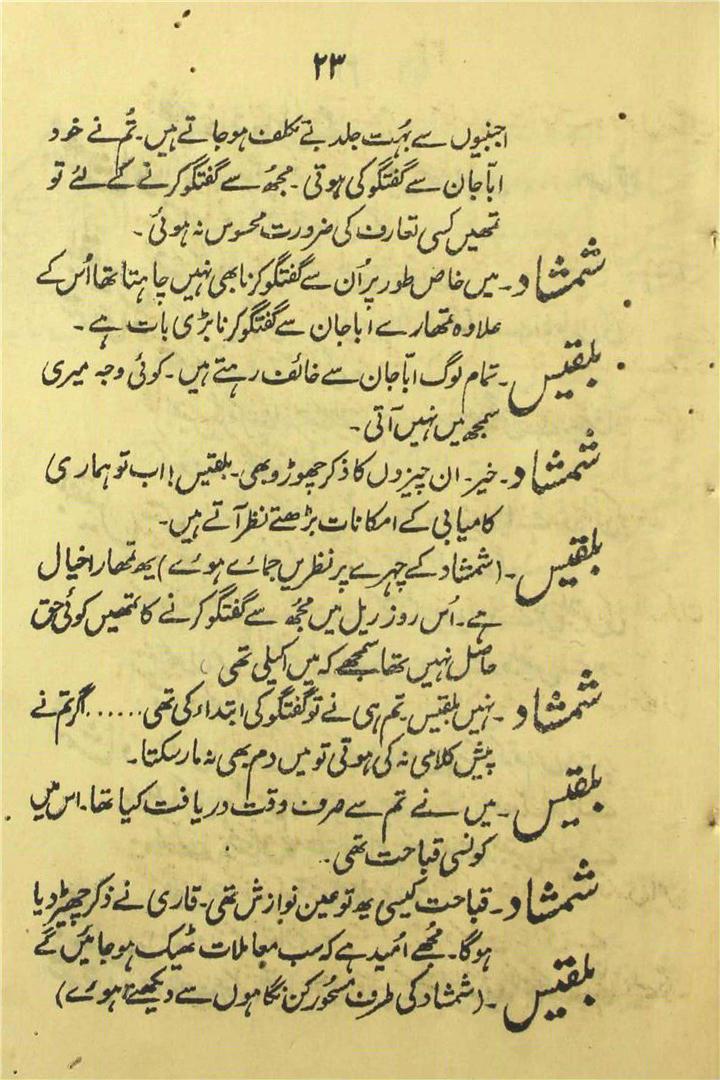 ۲۳
اجنبیوں سے بہُت جلد بے تکلف ہو جاتے ہیں۔ تُم نے خود
ابّا جان سے گفتگو کی ہوتی۔ مجھُ سے گفتگو کرنے کے لئے تو
تمھیں کسی تعارف کی ضرورت محسوس نہ ہوئی۔
شمشاد۔ میں خاص طور پر اُن سے گفتگو کرنا بھی نہیں چاہتا تھا اُس کے
علاوہ تمھارے ابا جان سے گفتگو کرنا بڑی بات ہے۔
بلقیس۔ تمام لوگ ابّا جان سے خائف رہتے ہیں۔ کوئی وجہ میری
سمجھ میں نہیں آتی۔
شمشاد۔ خیر۔ ان چیزوں کا ذکر چھوڑو بھی۔ بلقیس! اب تو ہماری
کامیابی کے امکانات بڑھتے نظر آتے ہیں۔
بلقیس۔ (شمشاد کے چہرے پر نظریں جمائے ہوئے) یھ تمھارا خیال
ہے۔ اُس روز ریل میں مجھُ سے گفتگو کرنے کا تمھیں کوئی حق
حاصل نہیں تھا سمجھے کہ میں اکیلی تھی
شمشاد۔ نہیں بلقیس۔ تم ہی نے تو گفتگو کی ابتداء کی تھی...... اگر تم نے
پیش کلامی نہ کی ہوتی تو میں دم بھی نہ مار سکتا۔
بلقیس۔ میں نے تم سے صرف وقت دریافت کیا تھا۔ اس میں
کونسی قباحت تھی۔
شمشاد۔ قباحت کیسی یھ تو عین نوازش تھی۔ قاری نے ذکر چھیڑ دیا
ہوگا۔ مجُھے اُمید ہے کہ سب معاملات ٹھیک ہو جائیں گے
بلقیس۔ (شمشاد کی طرف مسُحور کن نگاہوں سے دیکھتے ہوئے)